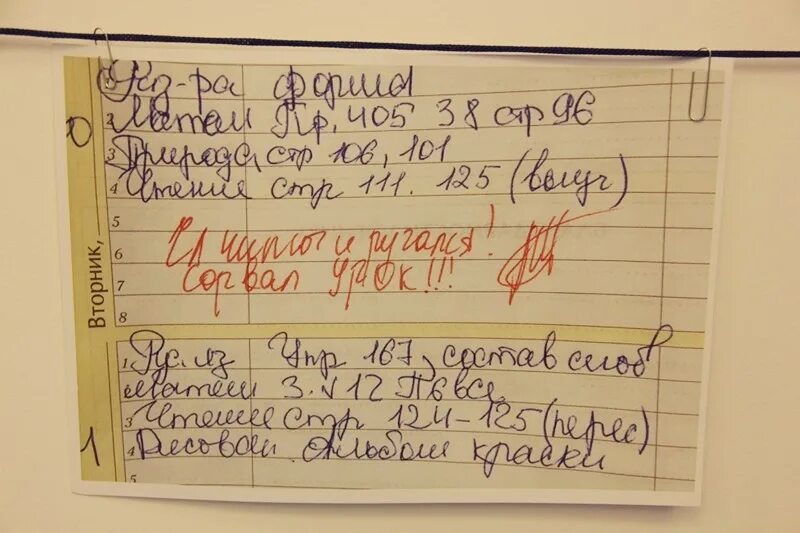 1 Физ-ра форма
2 Матем Пр. 405 38 стр 96
3 Природа, стр 106, 101
4 Чтение стр 111. 125 (выуч)
5
Ел чипсы и ругался!
6
сорвал УРОК!!!
7
8
Вторник,
0
1 Рус. яз Упр 167, состав слов
Матем 3. √ 12 П6 все,
3 Чтение стр 124-125 (перес)
4 Рисован. Альбом краски
5
1